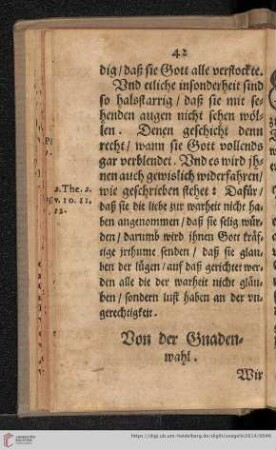 42
dig/ daß sie Gott alle verstockte.
Vnd etliche insonderheit sind
so halsstarrig/ daß sie mit se-
henden augen nicht sehen wöl-
len. Denen geschicht denn
recht/ wann sie Gott vollends
gar verblendet. Vnd es wird jh-
nen auch gewislich widerfahren/
2. The. 2.
v. 10. 11.
12.
wie geschrieben stehet: Dafür/
daß sie die liebe zur warheit nicht ha-
ben angenommen/ daß sie selig wür-
den/ darumb wird jhnen Gott kräf-
tige jrthume senden/ daß sie glau-
ben der lügen/ auf daß gerichtet wer-
den alle die der warheit nicht gläu-
ben/ sondern lust haben an der vn-
gerechtigkeit.
Von der Gnaden-
wahl.
Wir